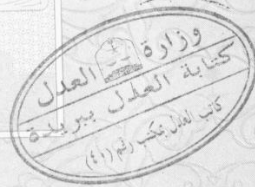 وزارة العدل
كتابة العدل ببريدة
كاتب العدل بمكتب رقم (٤١)